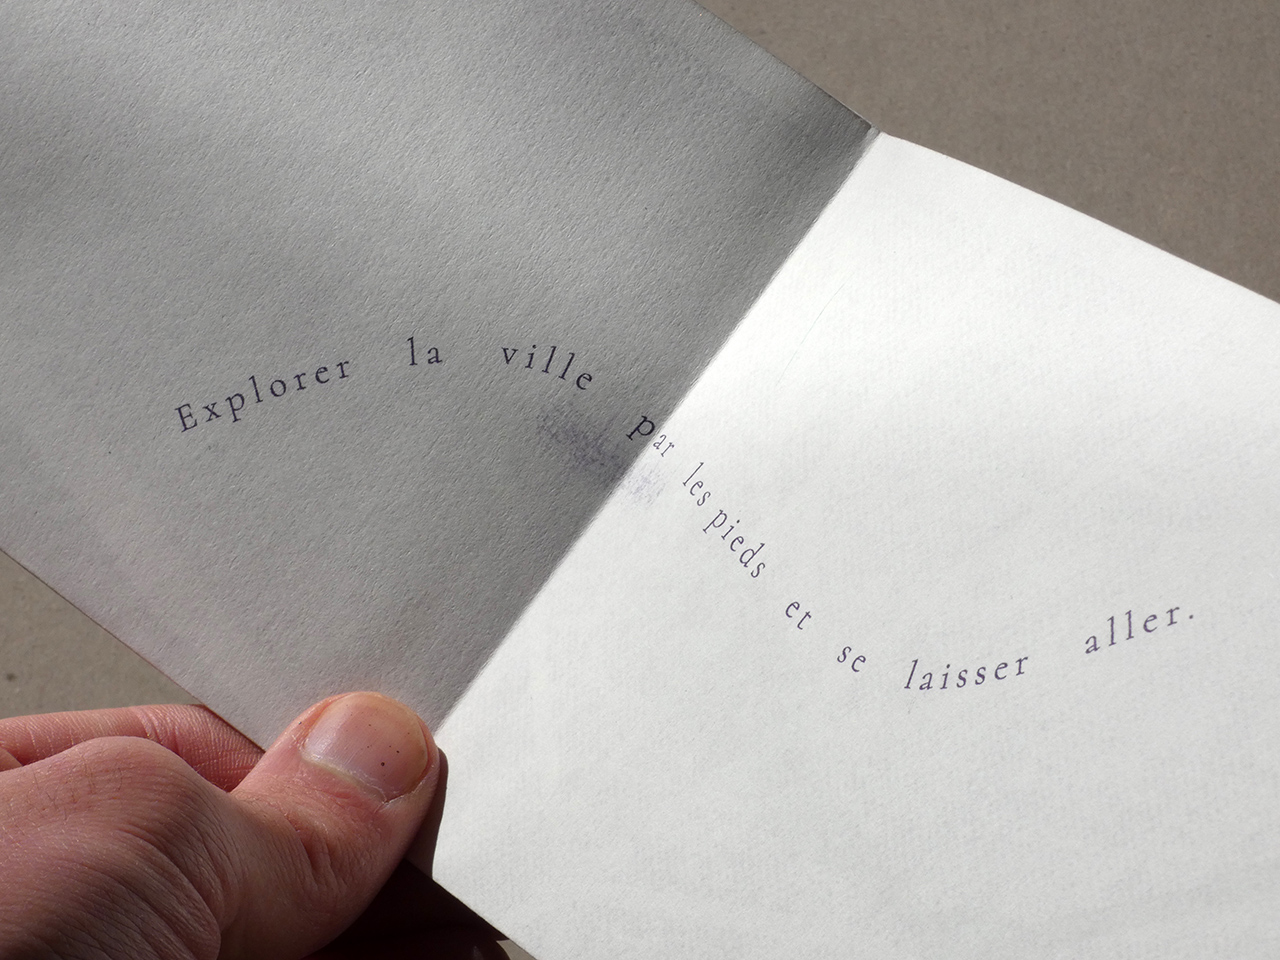 Explorer la ville par les pieds et se laisser aller.